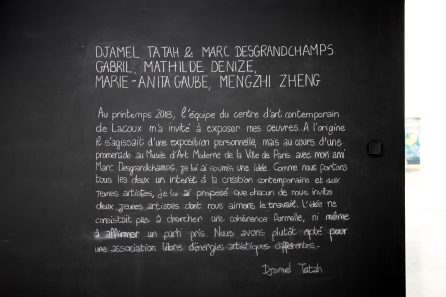 DJAMEL TATAH & MARC DESGRANDCHAMPS
GABRIL, MATHILDE DENIZE,
MARIE-ANITA GAUBE, MENGZHI ZHENG
Au printemps 2018, l'équipe du centre d'art contemporain
de Lacoux m'a invité à exposer mes oeuvres. A l'origine
il s'agissait d'une exposition personnelle, mais au cours d'une
promenade au Musée d'Art Moderne de la Ville de Paris avec mon ami
Marc Desgrandchamps, je lui ai soumis une idée. Comme nous portons
tous les deux un interêt à la création contemporaine et aux
jeunes artistes, je lui ai proposé que chacun de nous invite
deux jeunes artistes dont nous aimons le travail. L'idée ne
consistait pas à chercher une cohérence formelle, ni même
à affirmer un parti pris. Nous avons plutôt opté pour
une association libre d'énergies artistiques différentes.
Djamel Tatah